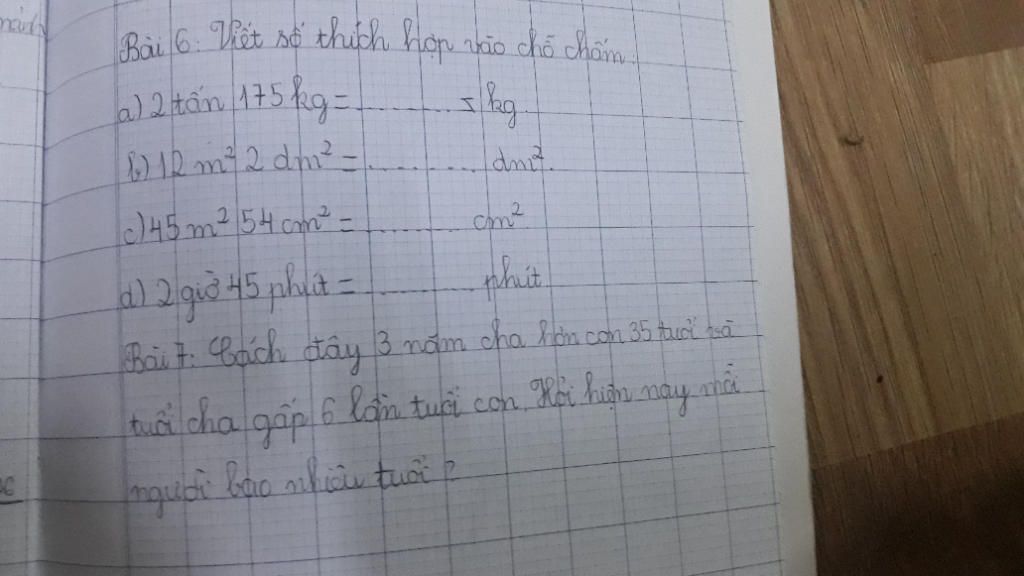 Bài 6: Viết số thích hợp vào chỗ chấm.
a) 2 tấn 175 kg = ............ kg
b) 12 m² 2 dm² = ............ dm².
c) 45 m² 54 cm² = ............ cm²
d) 2 giờ 45 phút = ............ phút
Bài 7: Cách đây 3 năm cha hơn con 35 tuổi và
tuổi cha gấp 6 lần tuổi con. Hỏi hiện nay mỗi
người bao nhiêu tuổi?